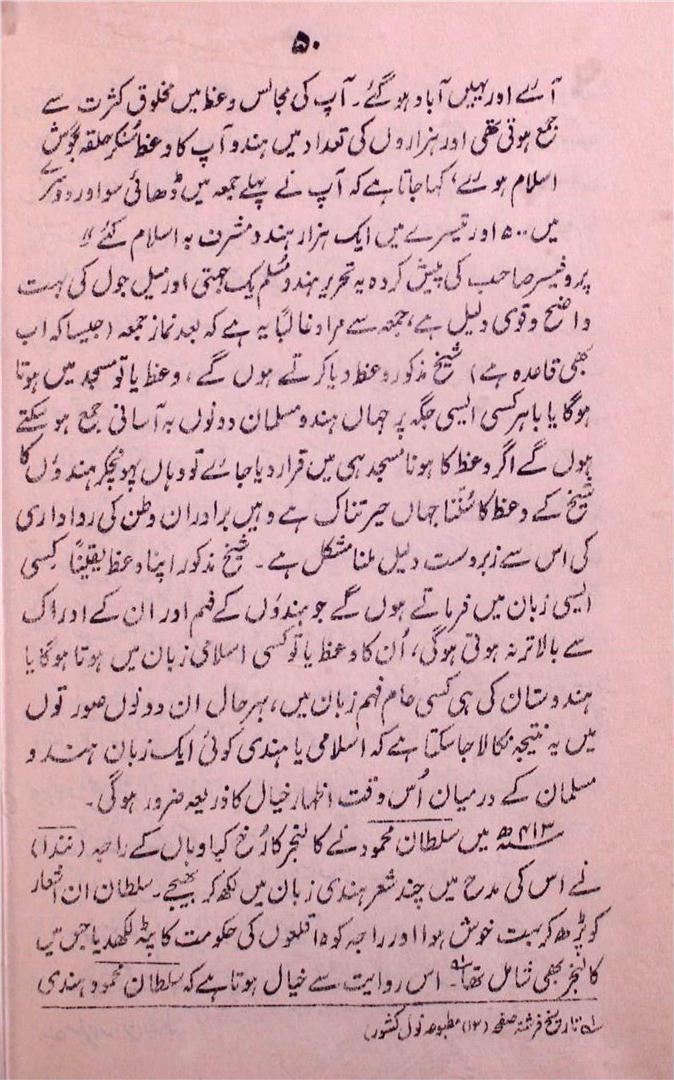 ۵۰
آئے اور یہیں آباد ہوگئے۔ آپ کی مجالس وعظ میں مخلوق کثرت سے
جمع ہوتی تھی اور ہزاروں کی تعداد میں ہندو آپ کا وعظ سُنکر حلقہ بگوش
اسلام ہوئے، کہا جاتا ہے کہ آپ نے پہلے جمعہ میں ڈھائی سو اور دوسرے
میں ۵۰۰ اور تیسرے میں ایک ہزار ہندو مشرف بہ اسلام کئے ״
پروفیسر صاحب کی پیش کردہ یہ تحریر ہندو مُسلم یک جہتی اور میل جول کی بہت
واضح وقوی دلیل ہے، جمعہ سے مراد غالباً یہ ہے کہ بعد نماز جمعہ (جیسا کہ اب
بھی قاعدہ ہے) شیخ مذکور وعظ دیا کرتے ہوں گے، وعظ یا تو مسجد میں ہوتا
ہوگا یا باہر کسی ایسی جگہ پر جہاں ہندو مسلمان دونوں بہ آسانی جمع ہو سکتے
ہوں گے اگر وعظ کا ہونا مسجد ہی میں قرار دیا جائے تو وہاں پہونچکر ہندوؤں کا
شیخ کے وعظ کا سُننا جہاں حیرتناک ہے وہیں برادران وطن کی رواداری
کی اس سے زبردست دلیل ملنا مشکل ہے۔ شیخ مذکور اپنا وعظ یقیناً کسی
ایسی زبان میں فرماتے ہوں گے جو ہندوُں کے فہم اور ان کے ادراک
سے بالاتر نہ ہوتی ہوگی، اُن کا وعظ یا تو کسی اسلامی زبان میں ہوتا ہوگا یا
ہندوستان کی ہی کسی عام فہم زبان میں، بہرحال ان دونوں صورتوں
میں یہ نتیجہ نکالا جاسکتا ہے کہ اسلامی یا ہندی کوئی ایک زبان ہندو
مسلمان کے درمیان اُس وقت اظہار خیال کا ذریعہ ضرور ہوگی۔
۴۱۳ھ میں سلطان محمود نے کالنجر کا رُخ کیا وہاں کے راجہ (نندا)
نے اس کی مدح میں چند شعر ہندی زبان میں لکھ کر بھیجے۔ سلطان ان اشعار
کو پڑھ کر بہت خوش ہوا اور راجہ کو ۱۵ قلعوں کی حکومت کا پٹہ لکھدیا جس میں
کالنجر بھی شامل تھا۔ اس روایت سے خیال ہوتا ہے کہ سلطان محمود ہندی
تاریخ فرشتہ صفحہ (۱۲) مطبوعہ نول کشور)